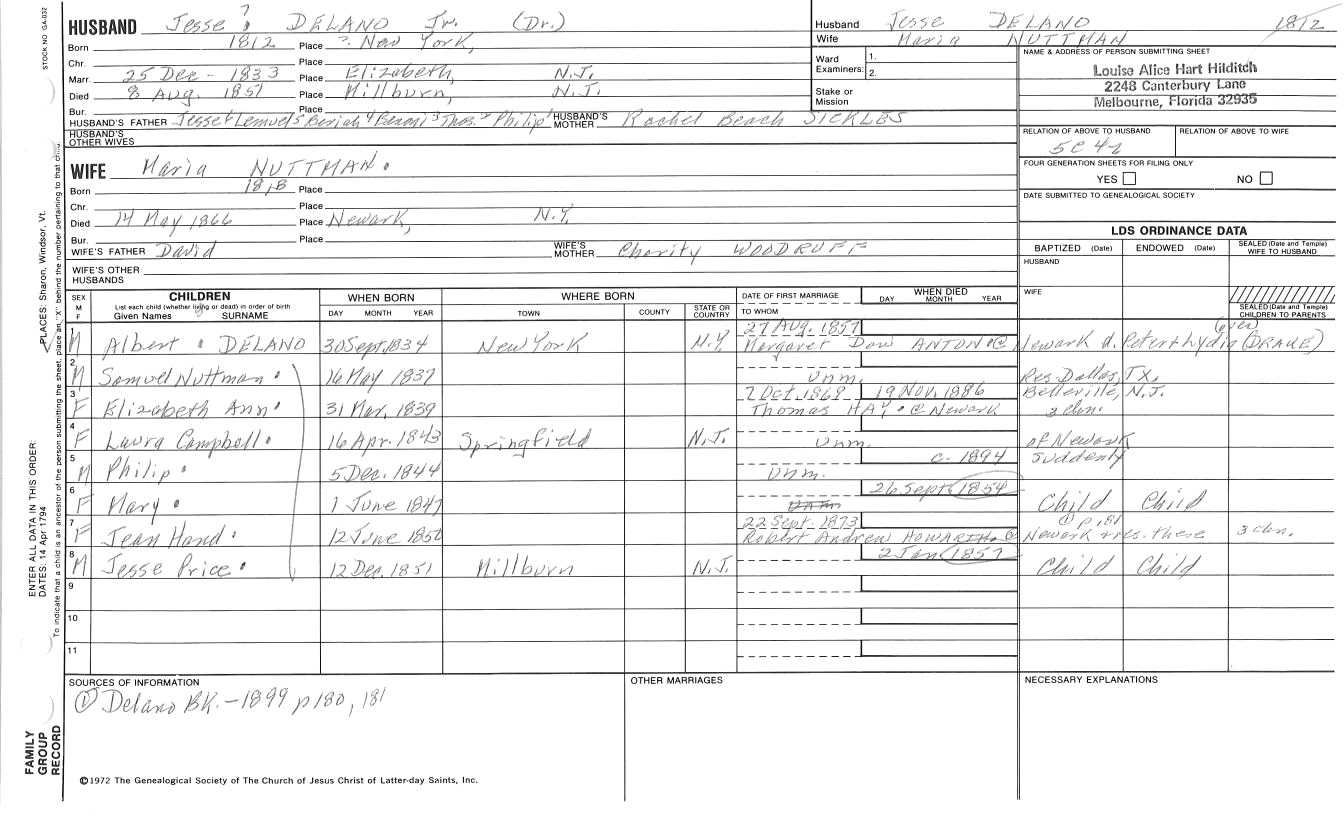 STOCK NO GA-032
HUSBAND Jesse ? DELANO Jr. (Dr.)
Born 1812 Place ? New York,
Chr. Place
Marr. 25 Dec - 1833 Place Elizabeth, N.J.
Died 8 Aug. 1851 Place Millburn, N.J.
Bur. Place
HUSBAND'S FATHER Jesse Lemuel Beriah Thos. Philip HUSBAND'S MOTHER Rachel Beach SICKLES
HUSBAND'S OTHER WIVES
WIFE Maria NUTTMAN
Born Place
Chr. Place
Died 14 May 1866 Place Newark,
Bur. Place
WIFE'S FATHER David WIFE'S MOTHER Charity WOODRUFF
WIFE'S OTHER HUSBANDS
Husband Jesse DELANO 1812
Wife Maria NUTTMAN
Ward Examiners: 1. 2.
Stake or Mission
NAME & ADDRESS OF PERSON SUBMITTING SHEET
Louise Alice Hart Hilditch
2248 Canterbury Lane
Melbourne, Florida 32935
RELATION OF ABOVE TO HUSBAND RELATION OF ABOVE TO WIFE
5C4r
FOUR GENERATION SHEETS FOR FILING ONLY
YES NO
DATE SUBMITTED TO GENEALOGICAL SOCIETY
LDS ORDINANCE DATA
BAPTIZED (Date) ENDOWED (Date) SEALED (Date and Temple) WIFE TO HUSBAND
HUSBAND
WIFE
SEALED (Date and Temple) CHILDREN TO PARENTS
SEX M F CHILDREN WHEN BORN WHERE BORN DATE OF FIRST MARRIAGE WHEN DIED
List each child (whether living or dead) in order of birth
Given Names SURNAME DAY MONTH YEAR TOWN COUNTY STATE OR COUNTRY TO WHOM DAY MONTH YEAR
27 Aug. 1857 (over)
1 M Albert DELANO 30 Sept. 1834 New York N.Y. Margaret Dow ANTON @ Newark d. Peter & Lydia (DRAKE)
2 M Samuel Nuttman 16 May 1837 Unm. Res Dallas, TX.
7 Oct. 1869 19 Nov. 1886 Belleville, N.J.
3 F Elizabeth Ann 31 Mar. 1839 Thomas HAY @ Newark 3 chn.
4 F Laura Campbell 16 Apr. 1843 Springfield N.J. Unm. of Newark
5 M Philip 5 Dec. 1844 Unm. c. 1894 suddenly
6 F Mary 1 June 1847 26 Sept. 1854 Child Child
22 Sept. 1873 @ p 181
7 F Jean Hand 12 June 1850 Robert Andrew HOWARTH @ Newark & res. there 3 chn.
8 M Jesse Price 12 Dec. 1851 Millburn N.J. 2 Jan 1857 Child Child
9
10
11
SOURCES OF INFORMATION
① Delano BK. - 1899 p 180, 181
OTHER MARRIAGES
NECESSARY EXPLANATIONS
©1972 The Genealogical Society of The Church of Jesus Christ of Latter-day Saints, Inc.
FAMILY GROUP RECORD
ENTER ALL DATA IN THIS ORDER:
DATES: 14 Apr 1794
PLACES: Sharon, Windsor, Vt.
To indicate that a child is an ancestor of the person submitting the sheet, place an "X" behind the number pertaining to that child.